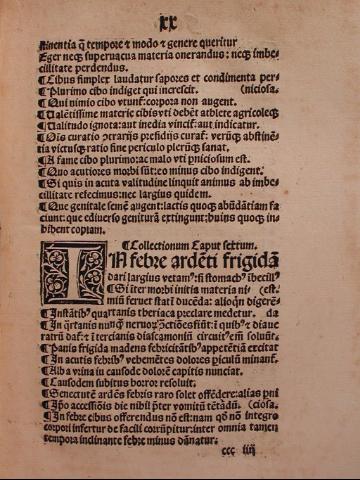 xx
tinentia q̃ tempore & modo & genere queritur
Eger neqȝ superuacua materia onerandus: neqȝ imbe-
cillitate perdendus.
¶Cibus simplex laudatur sapores et condimenta per-
¶Plurimo cibo indiget qui increscit. (niciosa.
¶Qui nimio cibo vtunt᷑: corpora non augent.
¶Ualētissime materie cibis vti debēt athlete agricoleqȝ
¶Ualitudo ignota: aut inedia vincit᷑: aut indicatur.
¶Oīs curatio presidijs curat᷑: verūqȝ abstinē-
tia victusqȝ ratio sine periculo plerūqȝ sanat.
¶A fame cibo plurimo: ac malo vti pniciosum est.
¶Quo acutiores morbi sūt: eo minus cibo indigent.
¶Si quis in acuta valitudine linquit animus ab imbe-
cillitate refecimus: nec largius quidem.
¶Que genitale semē augent: lactis quoqȝ abūdātiam fa
ciunt: que ediuerso geniturā extingunt: huius quoqȝ in-
hibent copiam.
¶Collectionum Caput sextum.
IN febre ardēti frigidā
dari largius vetamꝰ: si stomachꝰ ibecillꝰ
¶Si iter morbi initia materia ni (est.
miū feruet statī ducēda: alioqn digere-
¶Instātibꝰ quartanis theriaca preclare medetur. da
¶In q̄rtanis nunq̄ neruoȝ
ratrū dat᷑: ī tercianis diascamoniū circuitꝰ eīʒ soluūt.
¶Panis frigida madens febricitātibꝰ appetētiā excitat
¶In acutis febribꝰ vehemētes dolores piculū minant᷑.
¶Alba vrina iu causode dolorē capitis nunciat.
¶Causodem subitus horror resoluit.
¶Senectutē ardēs febris raro solet offēdere: alias pni
¶Ipo accessiōis die nihil pter vomitū tētādū. (ciosa.
¶In febre cibus offerendus nō est: nam qđ nō integro
corpori infertur de facili corrūpitur: inter omnia tamen
tempora inclinante febre minus dānatur.
ccc iiij